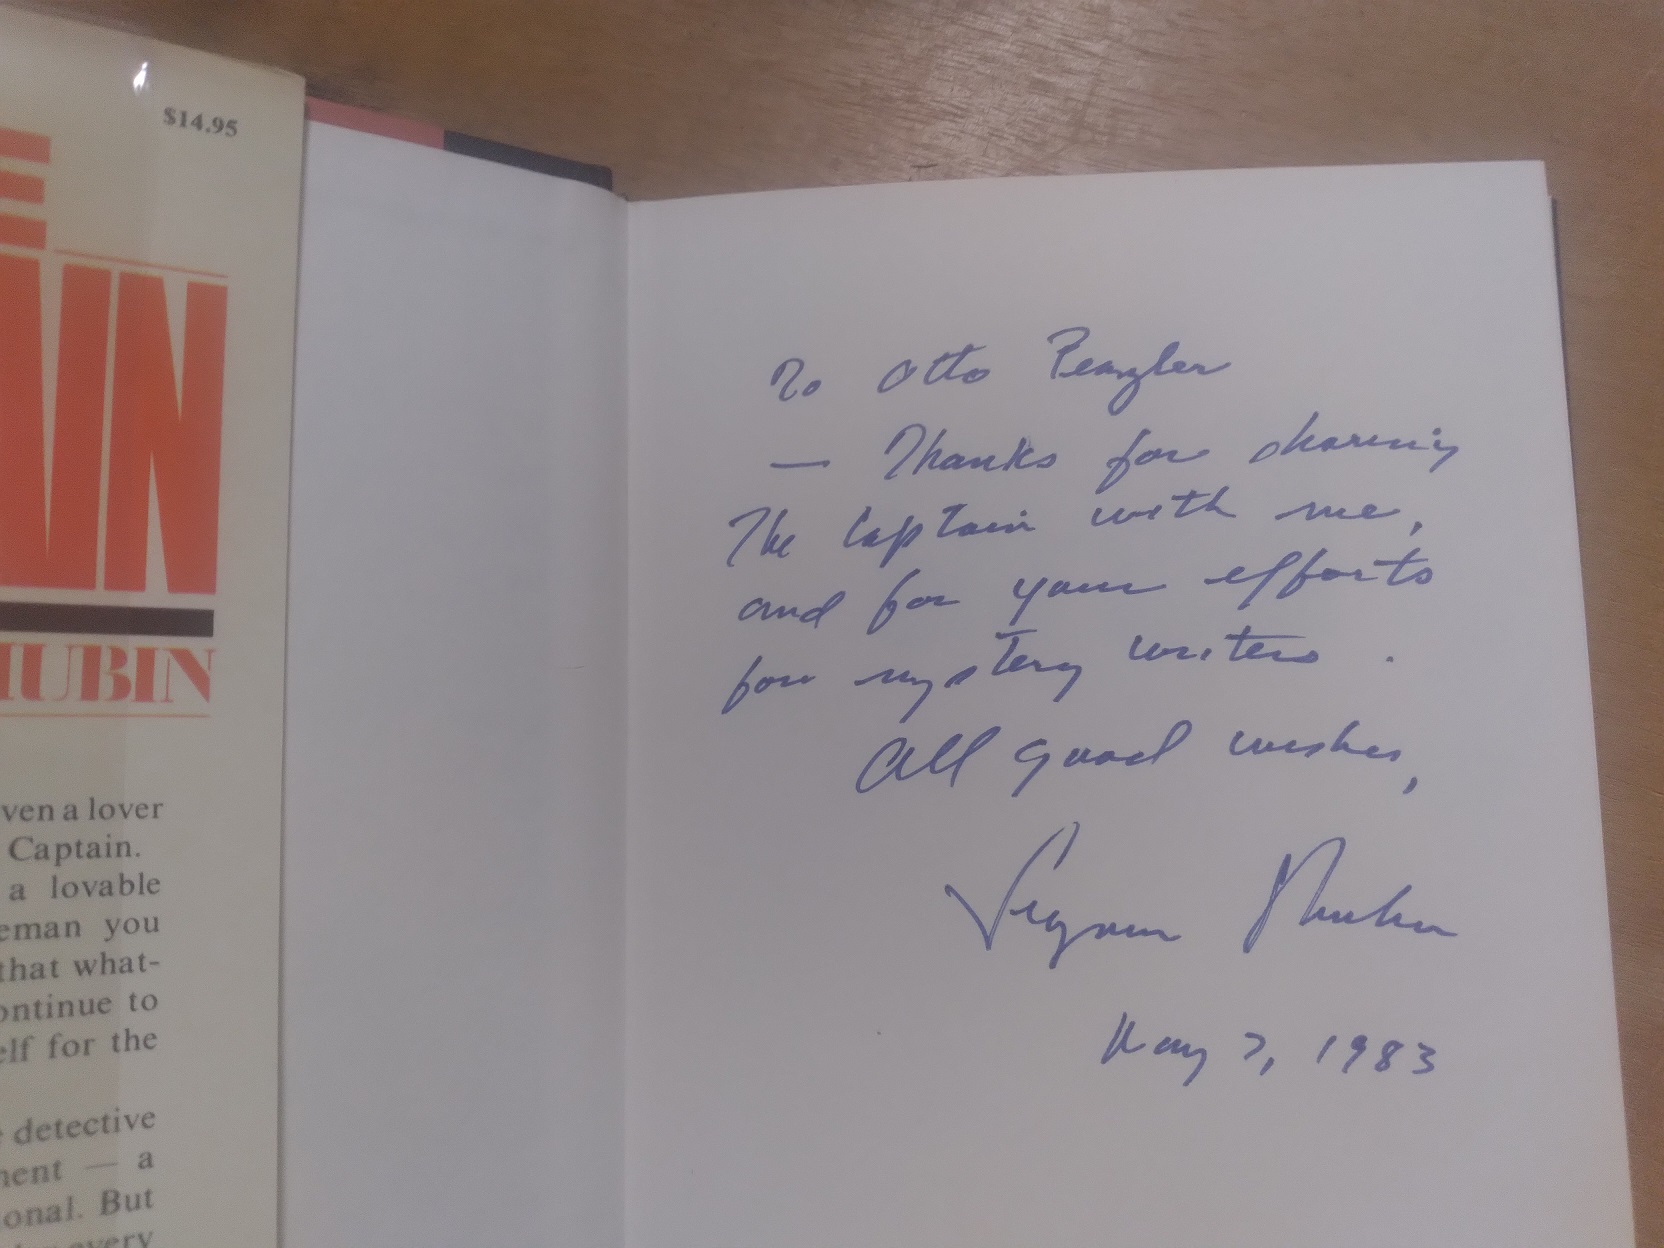 $14.95
AIN
HUBIN
ven a lover
Captain.
a lovable
eman you
that what-
ontinue to
elf for the
detective
ment — a
ional. But
every
To Otto Penzler
— Thanks for sharing
The Captain with me,
and for your efforts
for mystery writers.
All good wishes,
Seymour Shubin
May 7, 1983